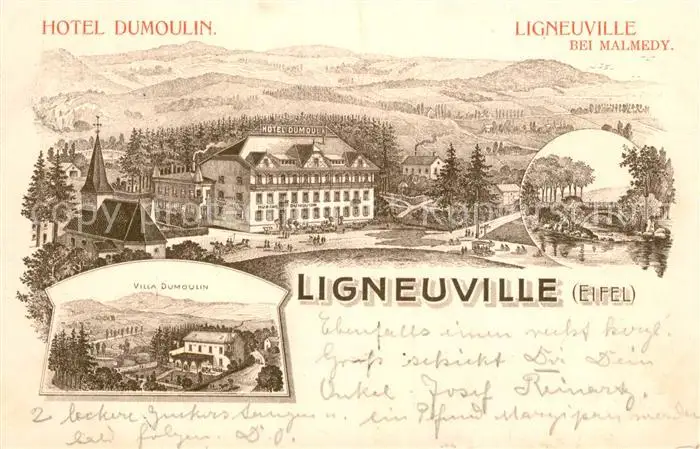 HOTEL DUMOULIN.
LIGNEUVILLE
BEI MALMEDY.
HOTEL DUMOULIN
VILLA DUMOULIN
LIGNEUVILLE (EIFEL)
Ebenfalls einen recht herzl.
Gruß schickt Dir Dein
Onkel Josef Reinartz.
2 leckere Zuckerstangen u. ein Pfund Marzipan werden
bald folgen. D. O.